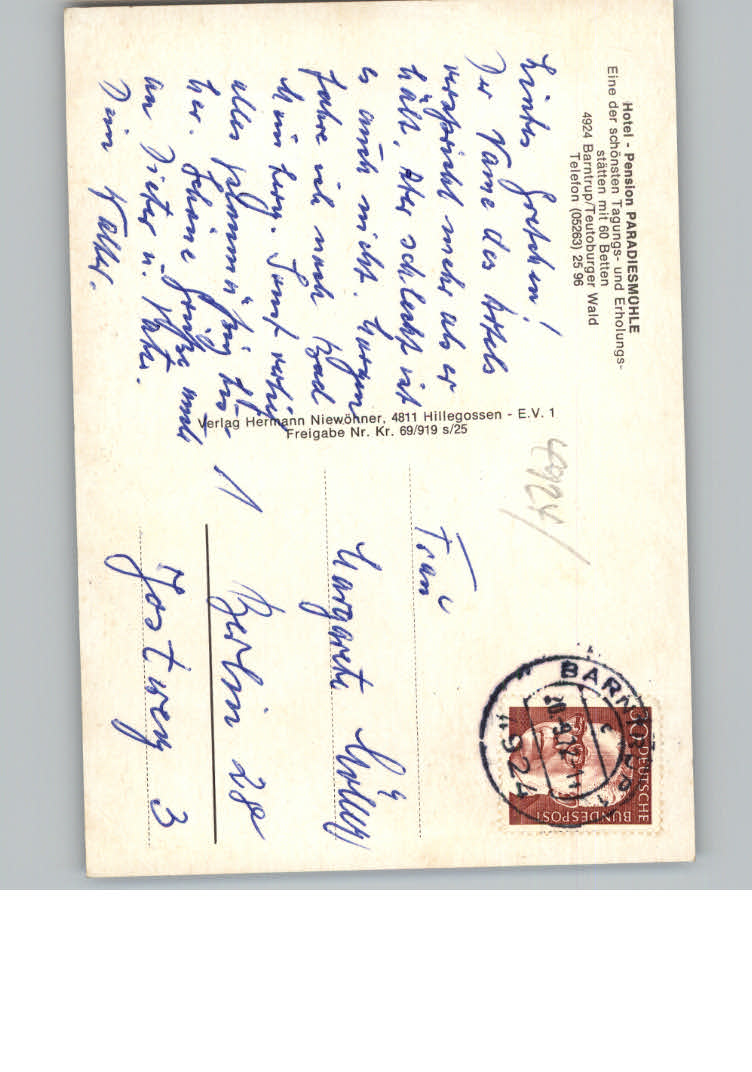 Hotel - Pension PARADIESMÜHLE
Eine der schönsten Tagungs- und Erholungs-
stätten mit 60 Betten
4924 Barntrup/Teutoburger Wald
Telefon (05263) 25 96
Liebes Gretchen!
Der Name des Hotels
verspricht mehr als er
hält, aber schlecht ist
es auch nicht. Morgen
fahre ich nach Bad
Sonst
alles
her. Schöne Grüße auch
an Dieter u.
Dein Walter.
Verlag Hermann Niewöhner, 4811 Hillegossen - E.V. 1
Freigabe Nr. Kr. 69/919 s/25
4924
BARNTRUP 1
20.9.72
4924
30 DEUTSCHE
BUNDESPOST
Frau
Margarete
1 Berlin 28
Jostweg 3